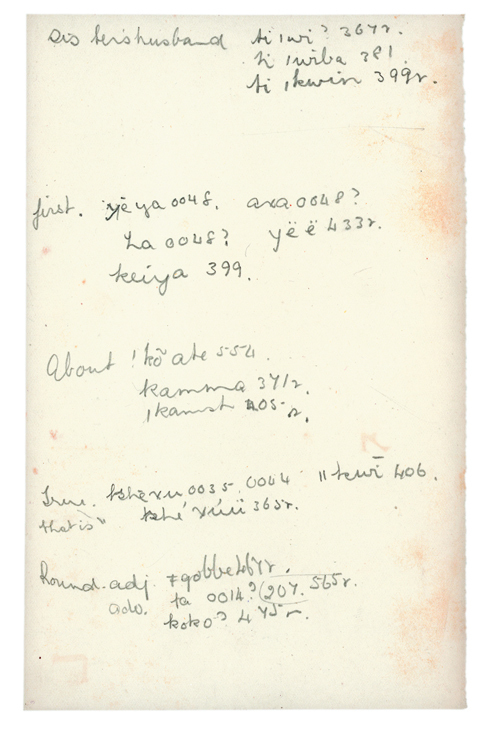 sistershusband ti ıwi? 367r.
ti ıwiba 381
ti ıkwin 399r.
first. yè ya 0048. axa 0048?
ha 0048? yëë 433r.
keiya 399.
About !kõ ate 554.
kamma 371r.
ıkamst 405r.
True. kshexu 0035. 0044 ǁkwī 406.
that is" kshé xúü 365r.
Round. adj. ǂgobbe 467r.
adv. ta 0014? (207. 565r.
koko? 475r.